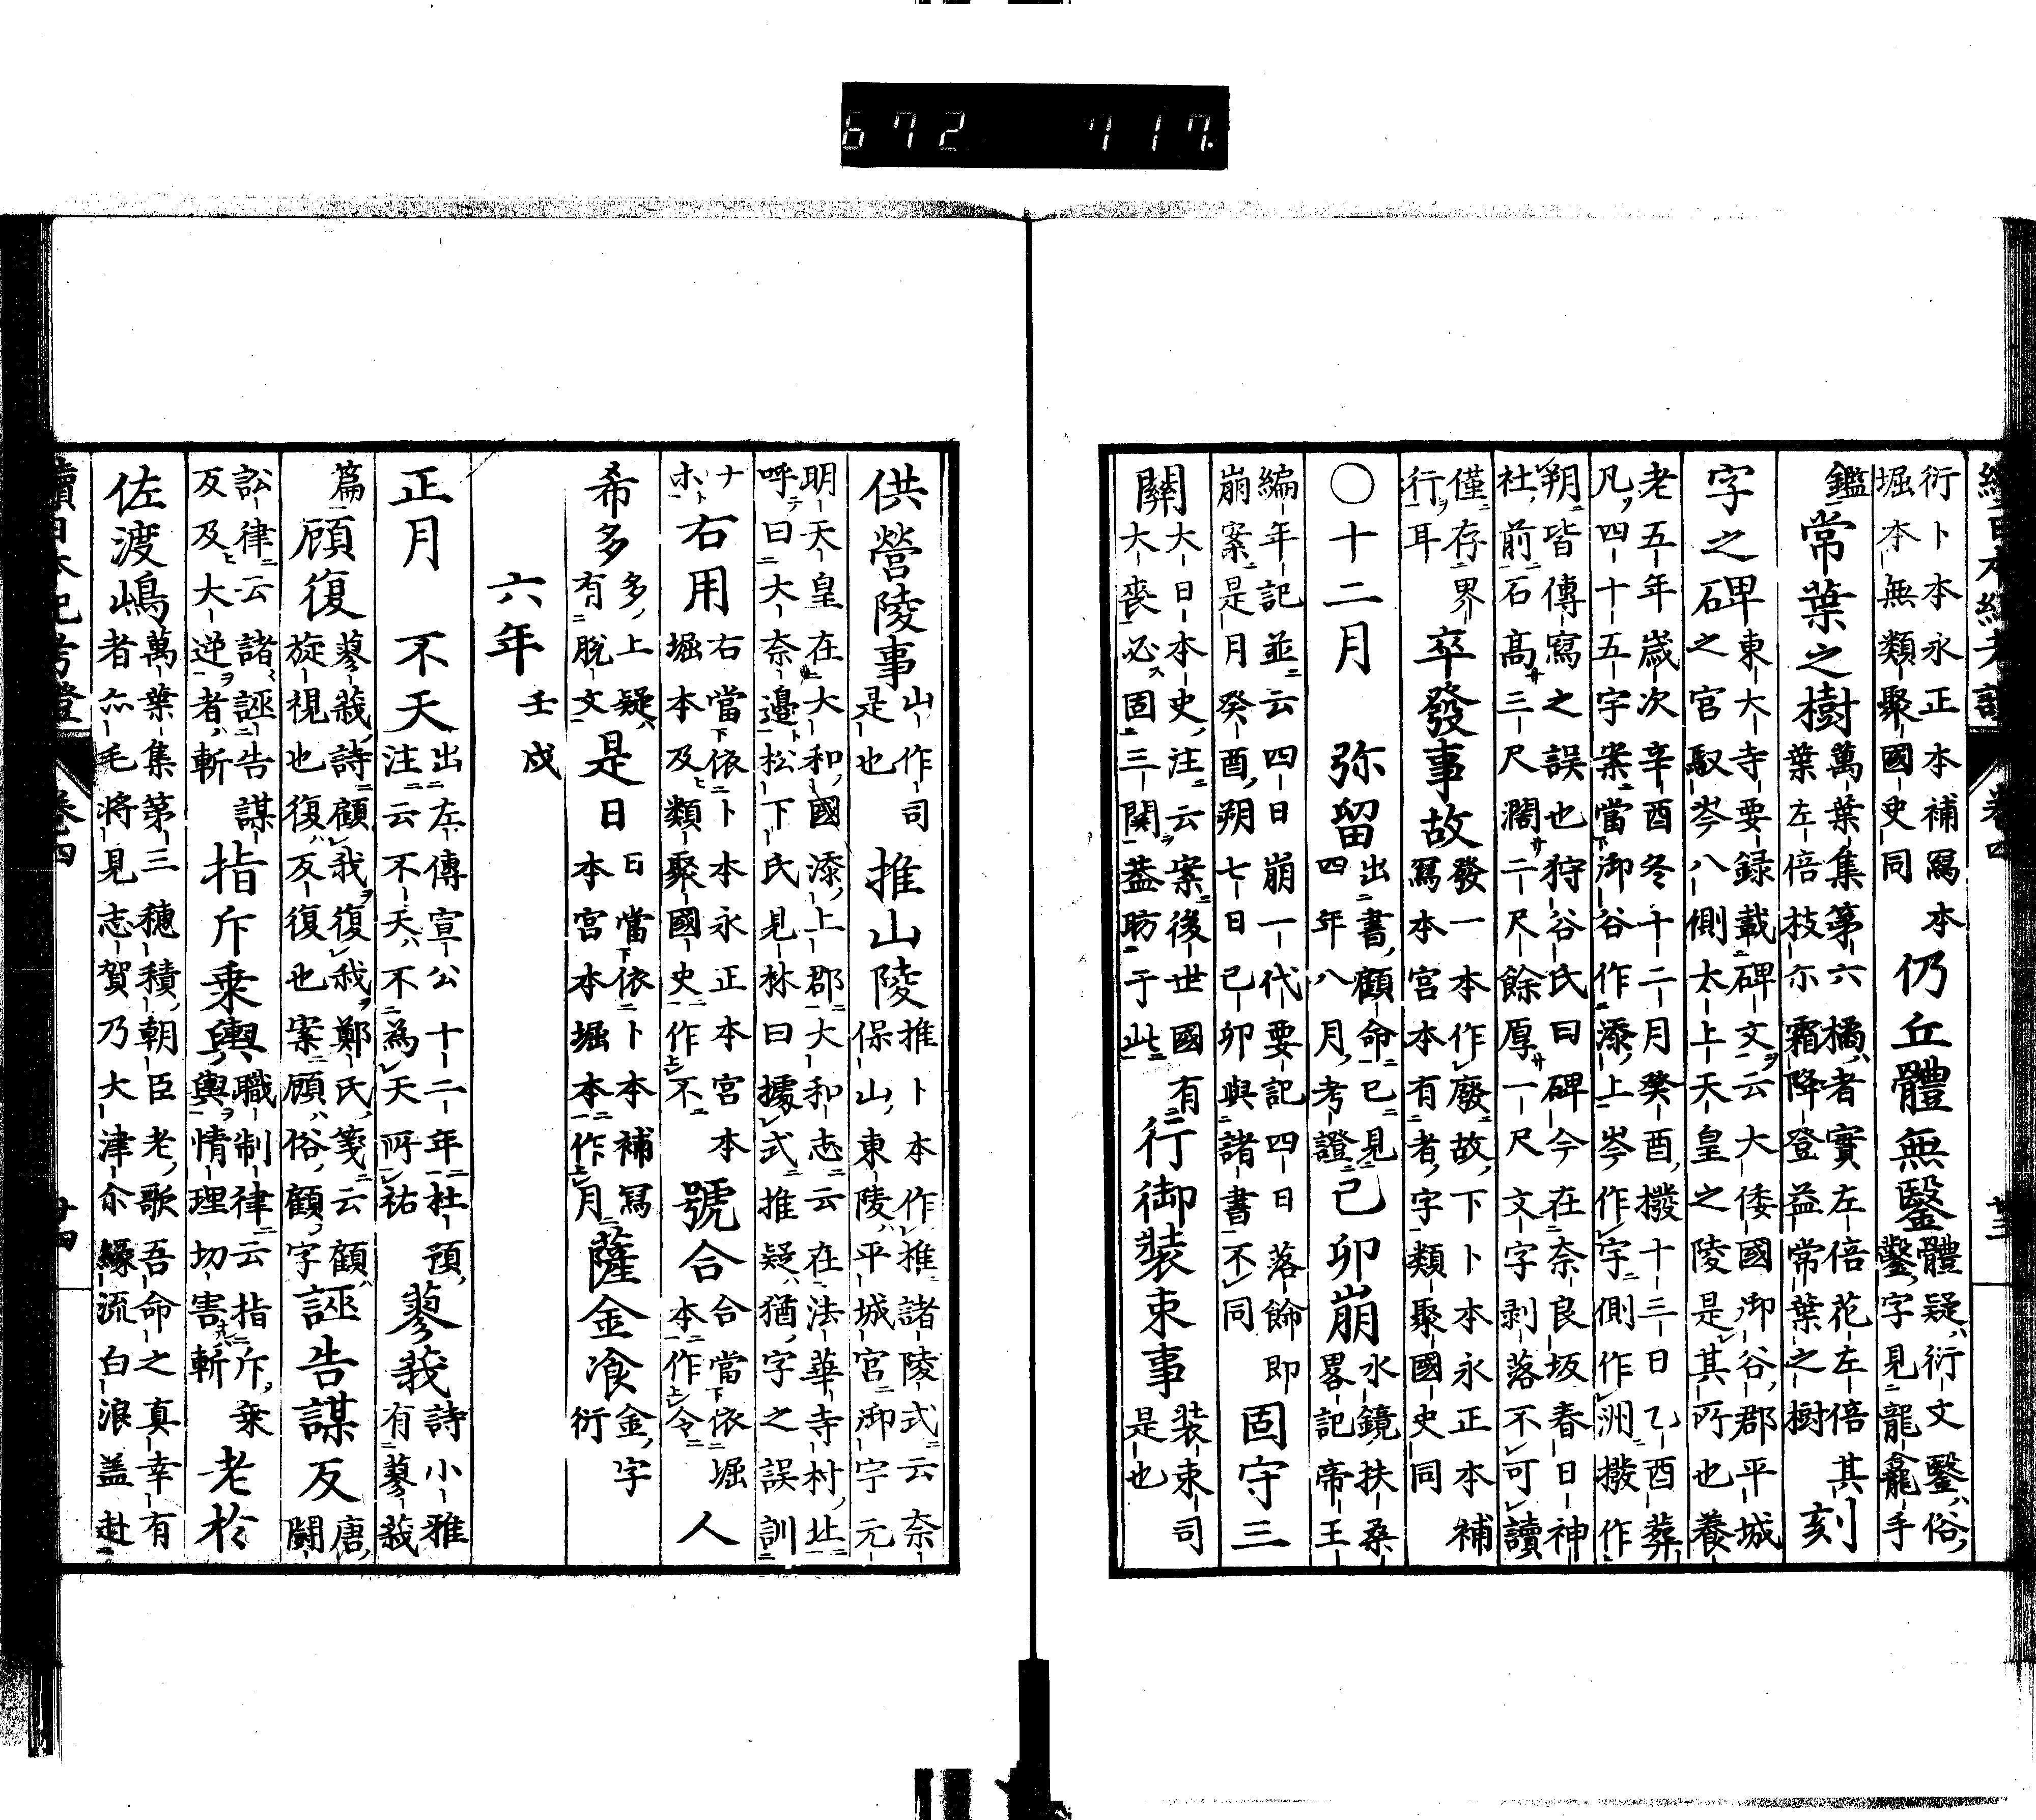 續日本紀考證 卷四 廿三
衍卜本永正本補冩本
堀本無類聚國史同
仍丘體無鑿
體疑衍文鑿俗
鑿字見龍龕手
鑑
常葉之樹
萬葉集第六橘者實左倍花左倍其
葉左倍枝尓霜降登益常葉之樹
刻
字之碑
東大寺要録載碑文云大倭國御谷郡平城
之宮馭岑八側太上天皇之陵是其所也養
老五年歲次辛酉冬十二月癸酉撥十三日乙酉葬
凡四十五字案當御谷作添上岑作宇側作洲撥作
朔皆傳寫之誤也狩谷氏曰碑今在奈良坂春日神
社前石高三尺濶二尺餘厚一尺文字剥落不可讀
僅存界
行耳
卒發事故
發一本作廢故下卜本永正本補
冩本宮本有者字類聚國史同
○十二月 弥留
出書顧命已見
四年八月考證
己卯崩
水鏡扶桑
畧記帝王
編年記並云四日崩一代要記四日落餝即
崩案是月癸酉朔七日己卯與諸書不同
固守三
關
大日本史注云案後世國有
大喪必固三關蓋昉于此
行御裝束事
装束司
是也
供營陵事
山作司
是也
推山陵
推卜本作推諸陵式云奈
保山東陵平城宮御宇元
明天皇在大和國添上郡大和志云在法華寺村北
呼曰大奈邊松下氏見林曰據式推疑猶字之誤訓
ナ
ホト
右用
右當依卜本永正本宮本
堀本及類聚國史作不
號合
合當依堀
本作令
人
希多
多上疑
有脫文
是日
日當依卜本補冩
本宮本堀本作月
薩金飡
金字
衍
六年 壬戌
正月 不天
出左傳宣公十二年杜預
注云不天不為天所祐
蓼莪
詩小雅
有蓼莪
篇
顧復
蓼莪詩顧我復我鄭氏箋云顧
旋視也復反復也案顧俗顧字
誣告謀反
唐
鬪
訟律云諸誣告謀
反及大逆者斬
指斥乘輿
職制律云指斥乘
輿情理切害斬
老於
佐渡嶋
萬葉集第三穗積朝臣老歌吾命之真幸有
者亦毛將見志賀乃大津尒緣流白浪盖赴
續日本紀考證 卷四 廿四